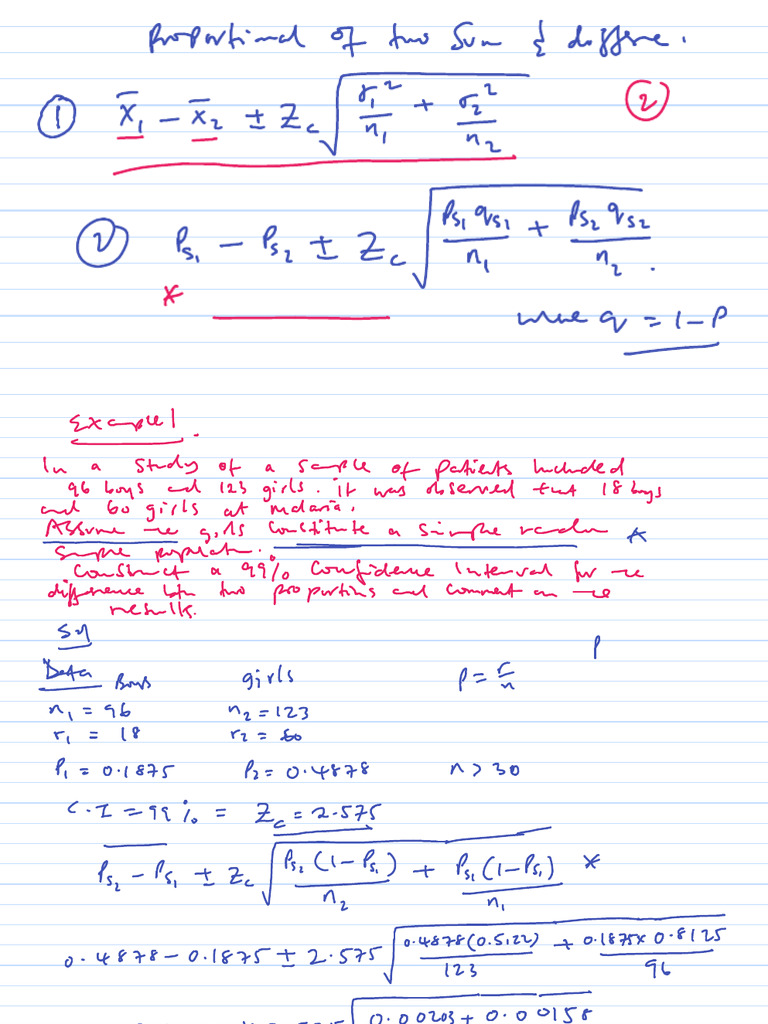 Proportional of two Sum & differe.
① x̄₁ − x̄₂ ± Zc √(σ₁²/n₁ + σ₂²/n₂) ②
② Ps₁ − Ps₂ ± Zc √(Ps₁ qs₁/n₁ + Ps₂ qs₂/n₂).
*
where q = 1−P
Example 1.
In a study of a sample of patients included
96 boys and 123 girls. it was observed that 18 boys
and 60 girls at malaria.
Assume the girls constitute a simple random *
sample population.
Construct a 99% Confidence Interval for the
difference btn two proportions and comment on the
results.
Sol
P
Data Boys girls P = r/n
n₁ = 96 n₂ = 123
r₁ = 18 r₂ = 60
P₁ = 0.1875 P₂ = 0.4878 n > 30
C.I = 99% = Zc = 2.575
Ps₂ − Ps₁ ± Zc √(Ps₂(1−Ps₂)/n₂ + Ps₁(1−Ps₁)/n₁) *
0.4878 − 0.1875 ± 2.575 √(0.4878(0.5122)/123 + 0.1875 x 0.8125/96)
√(0.00203 + 0.00158